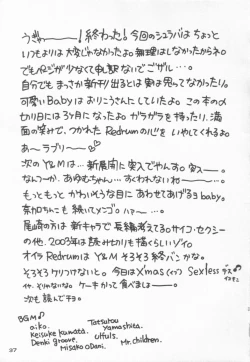 うぎゃーー！終わった！今回のシュラバはちょっと
いつもよりは大変じゃなかったよ。無理はしなかったからネ。
でもページが少なくて申し訳ないでゴザル…。
自分でもまさか新刊出るとは実は思ってなかったり。
可愛いBabyはおりこうさんにしていたよ。この本の〆
切り日には3ヶ月になったよ。ガラガラを持ったり、満
面の笑みで、つかれたRedrumの心をいやしてくれるよ
あーラブリー♡
次のY&Mは…新展開に突入でやんす。突入ー。
なんつーか、あゆむちゃん…すくわれないねーーー…。
もっともっとかわいそうな目にあわせてあげるよbaby。
奈加ちんにも続いてメンゴ。ハァー…。
尾崎の方は新キャラで長編考えてるよ。サイコ・セクシー
の他、2003年は読み切りも描くらしいゾイ。
オイラRedrumはY&Mそろそろ終バンかな。
そろそろケリつけないと。今日はXmas(イブ) Sexlessデス
イヤ、そりゃないな。ケーキかって食べましょーー。
次も読んでチョ。
BGM
aiko.
Tatsurou Yamashita.
Keisuke kuwata.
Ulfuls.
Denki groove.
Mr. children.
Misako ODani.
97